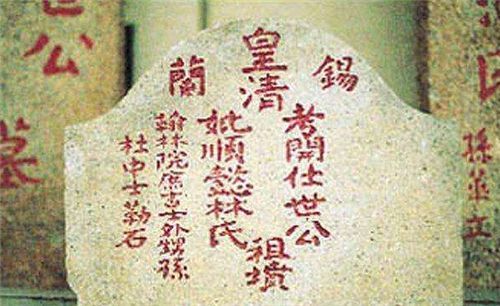 皇清
錫蘭
考開仕世公
妣順懿林氏
祖墳
翰林院庶吉士外甥孫
杜中士勒石
世公
墓
孫立